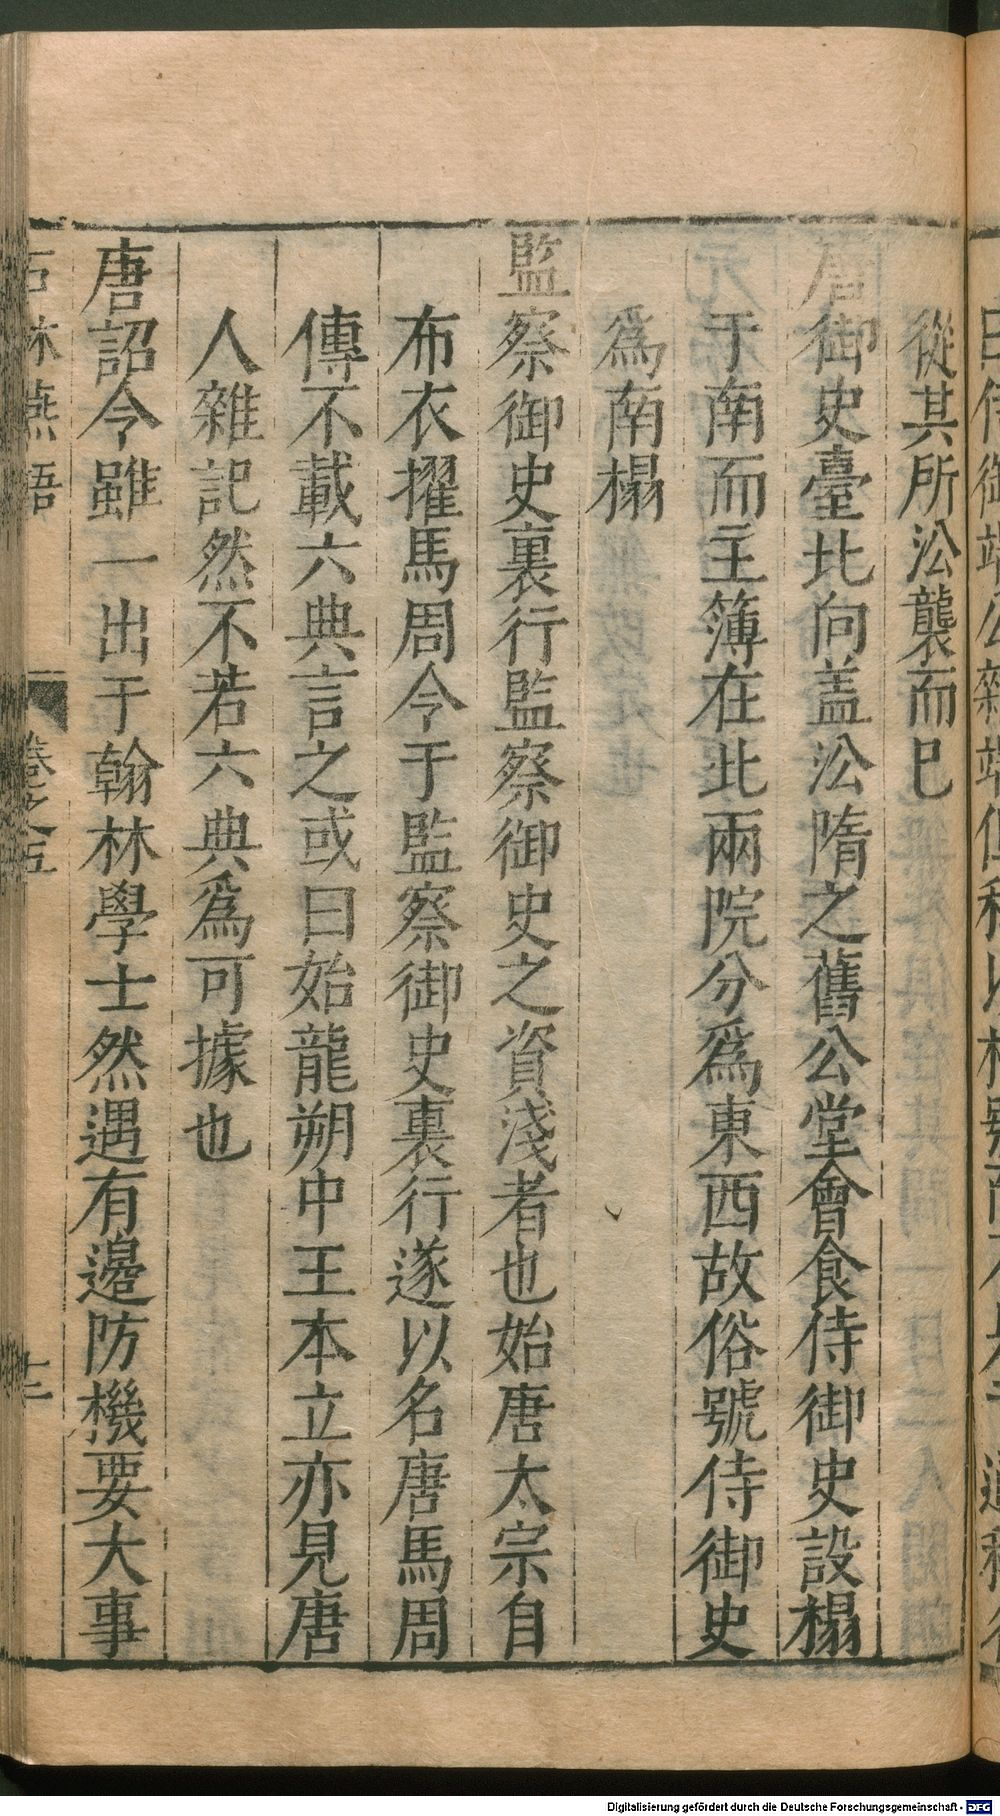 從其所㳂襲而巳
唐御史臺北向盖㳂隋之舊公堂會食侍御史設榻
于南而主簿在北兩院分爲東西故俗號侍御史
爲南榻
監察御史裏行監察御史之資淺者也始唐太宗自
布衣擢馬周令于監察御史裏行遂以名唐馬周
傳不載六典言之或曰始龍朔中王本立亦見唐
人雜記然不若六典爲可據也
唐詔令雖一出于翰林學士然遇有邊防機要大事
石林燕語
卷之五
十二
Digitalisierung gefördert durch die Deutsche Forschungsgemeinschaft - DFG